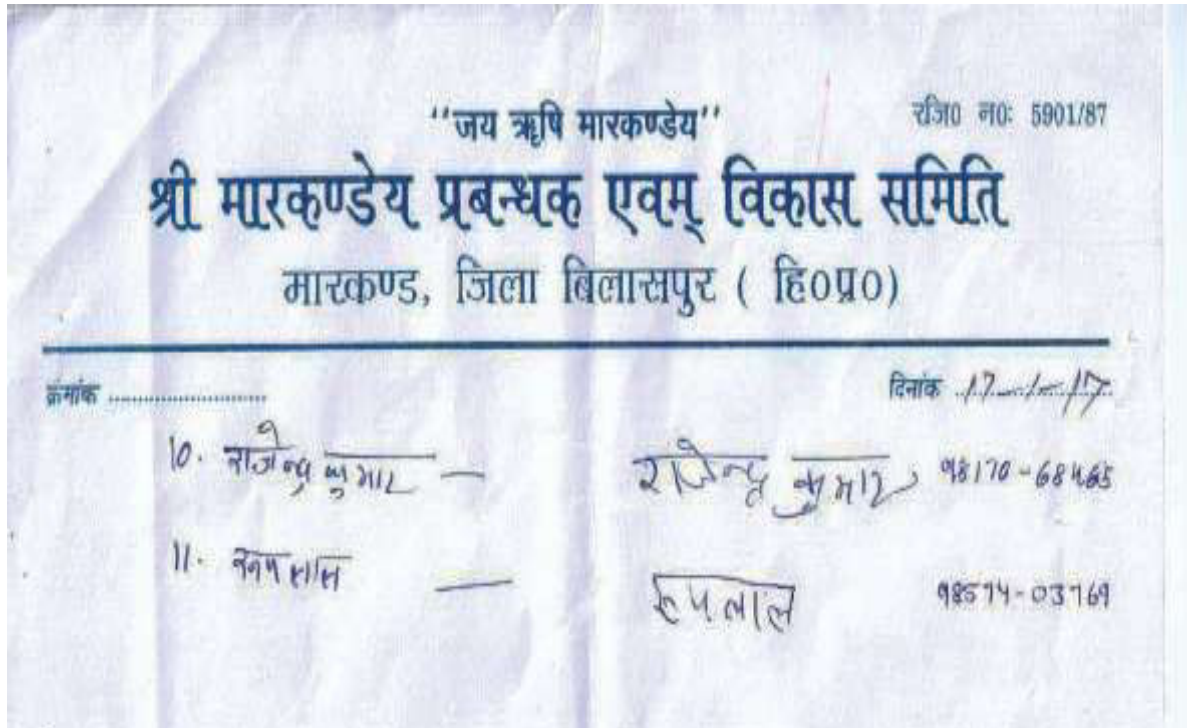 "जय ऋषि मारकण्डेय" रजि0 न0: 5901/87
श्री मारकण्डेय प्रबन्धक एवम् विकास समिति
मारकण्ड, जिला बिलासपुर ( हि0प्र0)
क्रंमांक ........................ दिनांक 17-1-17
10. राजेन्द्र कुमार — राजेन्द्र कुमार 98170-68465
11. रूप लाल — रूप लाल 98574-03769